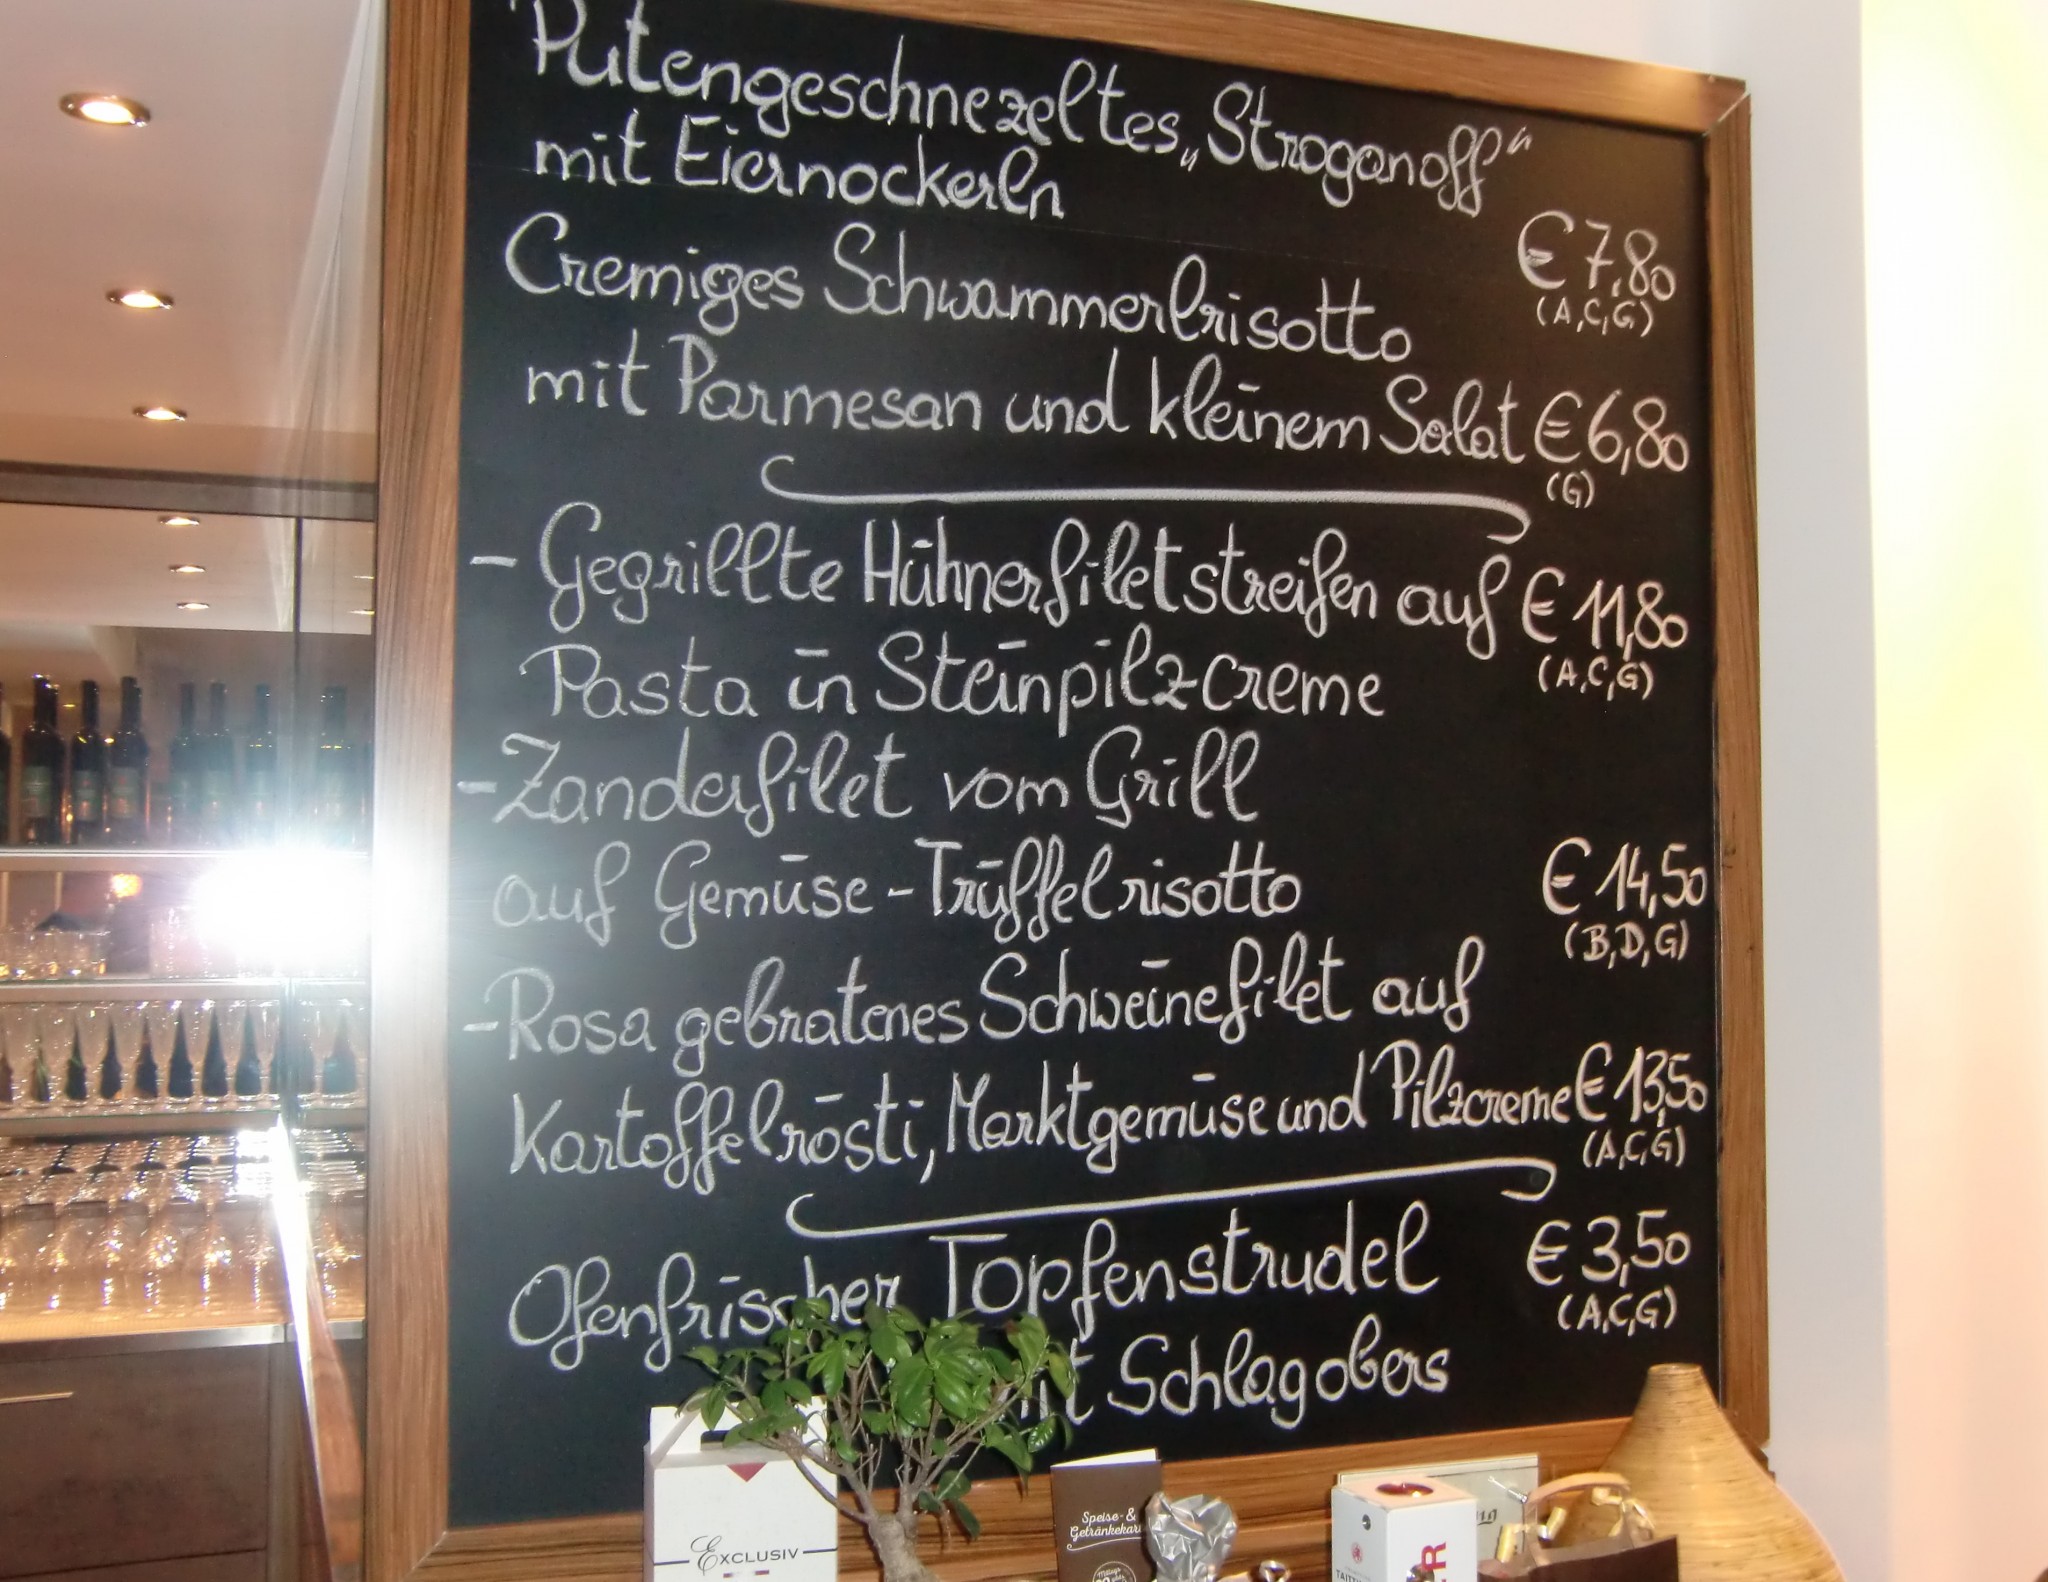 Putengeschnezeltes „Stroganoff“
mit Eiernockerln
€ 7,80
(A,C,G)
Cremiges Schwammerlrisotto
mit Parmesan und kleinem Salat € 6,80
(G)
- Gegrillte Hühnerfiletstreifen auf € 11,80
(A,C,G)
Pasta in Steinpilzcreme
- Zanderfilet vom Grill
auf Gemüse-Trüffelrisotto € 14,50
(B,D,G)
- Rosa gebratenes Schweinefilet auf
Kartoffelrösti, Marktgemüse und Pilzcreme € 13,50
(A,C,G)
Ofenfrischer Topfenstrudel € 3,50
(A,C,G)
Schlagobers
EXCLUSIV
Speise- &